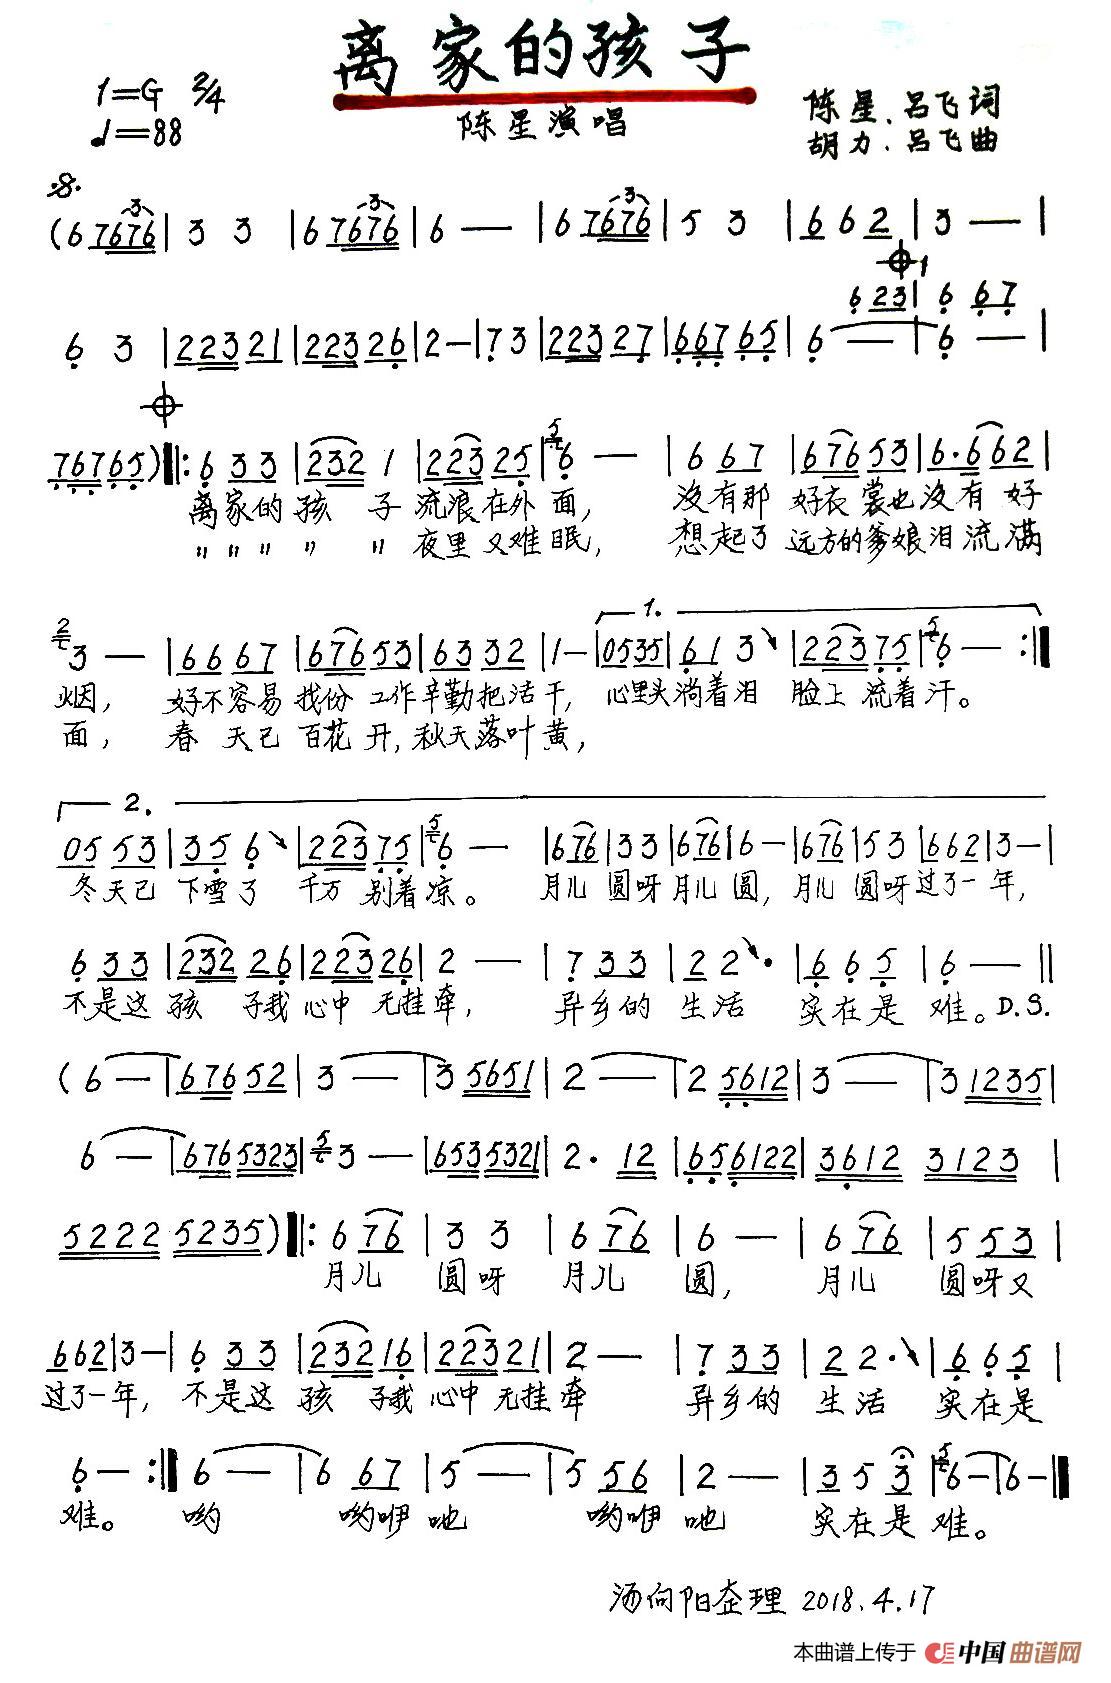 离家的孩子
1=G 2/4
♩=88
陈星演唱
陈星、吕飞词
胡力、吕飞曲
(6 7676 | 3 3 | 6 7676 | 6 — | 6 7676 | 5 3 | 6 6 2 | 3 — |
6 2 3 | 6 6 7
6 3 | 2 2 3 2 1 | 2 2 3 2 6 | 2 — | 7 3 | 2 2 3 2 7 | 6 6 7 6 5 | 6 — | 6 — |
7 6 7 6 5 ) ‖: 6 3 3 | 2 3 2 1 | 2 2 3 2 5 | 6 — | 6 6 7 | 6 7 6 5 3 | 6 · 6 6 2 |
离家的 孩 子 流浪在外 面， 没有那 好衣裳也没有 好
〃〃〃 〃 〃 夜里又难眠， 想起了 远方的爹娘泪流满
1.
3 — | 6 6 6 7 | 6 7 6 5 3 | 6 3 3 2 | 1 — | 0 5 3 5 | 6 1 3 | 2 2 3 7 5 | 6 — :‖
烟， 好不容易 找份 工作辛勤把活干， 心里头淌着泪 脸上 流着汗。
面， 春 天已 百花 开，秋天落叶黄，
2.
0 5 5 3 | 3 5 6 | 2 2 3 7 5 | 6 — | 6 7 6 | 3 3 | 6 7 6 | 6 — | 6 7 6 | 5 3 | 6 6 2 | 3 — |
冬天已 下雪了 千万 别着凉。 月儿 圆呀月儿 圆，月儿 圆呀过了一年，
6 3 3 | 2 3 2 2 6 | 2 2 3 2 6 | 2 — | 7 3 3 | 2 2 · | 6 6 5 | 6 — ‖
不是这 孩 子我 心中 无挂牵， 异乡的 生活 实在是 难。D.S.
( 6 — | 6 7 6 5 2 | 3 — | 3 5 6 5 1 | 2 — | 2 5 6 1 2 | 3 — | 3 1 2 3 5 |
6 — | 6 7 6 5 3 2 3 | 3 — | 6 5 3 5 3 2 1 | 2 · 1 2 | 6 5 6 1 2 2 | 3 6 1 2 3 1 2 3 |
5 2 2 2 5 2 3 5 ) ‖: 6 7 6 | 3 3 | 6 7 6 | 6 — | 6 7 6 | 5 5 3 |
月儿 圆呀 月儿 圆， 月儿 圆呀又
6 6 2 | 3 — | 6 3 3 | 2 3 2 1 6 | 2 2 3 2 1 | 2 — | 7 3 3 | 2 2 · | 6 6 5 |
过了一年， 不是这 孩 子我 心中 无挂牵 异乡的 生活 实在是
6 — :‖ 6 — | 6 6 7 | 5 — | 5 5 6 | 2 — | 3 5 3 | 6 — | 6 — ‖
难。 哟 哟咿 吔 哟咿 吔 实在是 难。
汤向阳整理 2018.4.17
本曲谱上传于 中国曲谱网